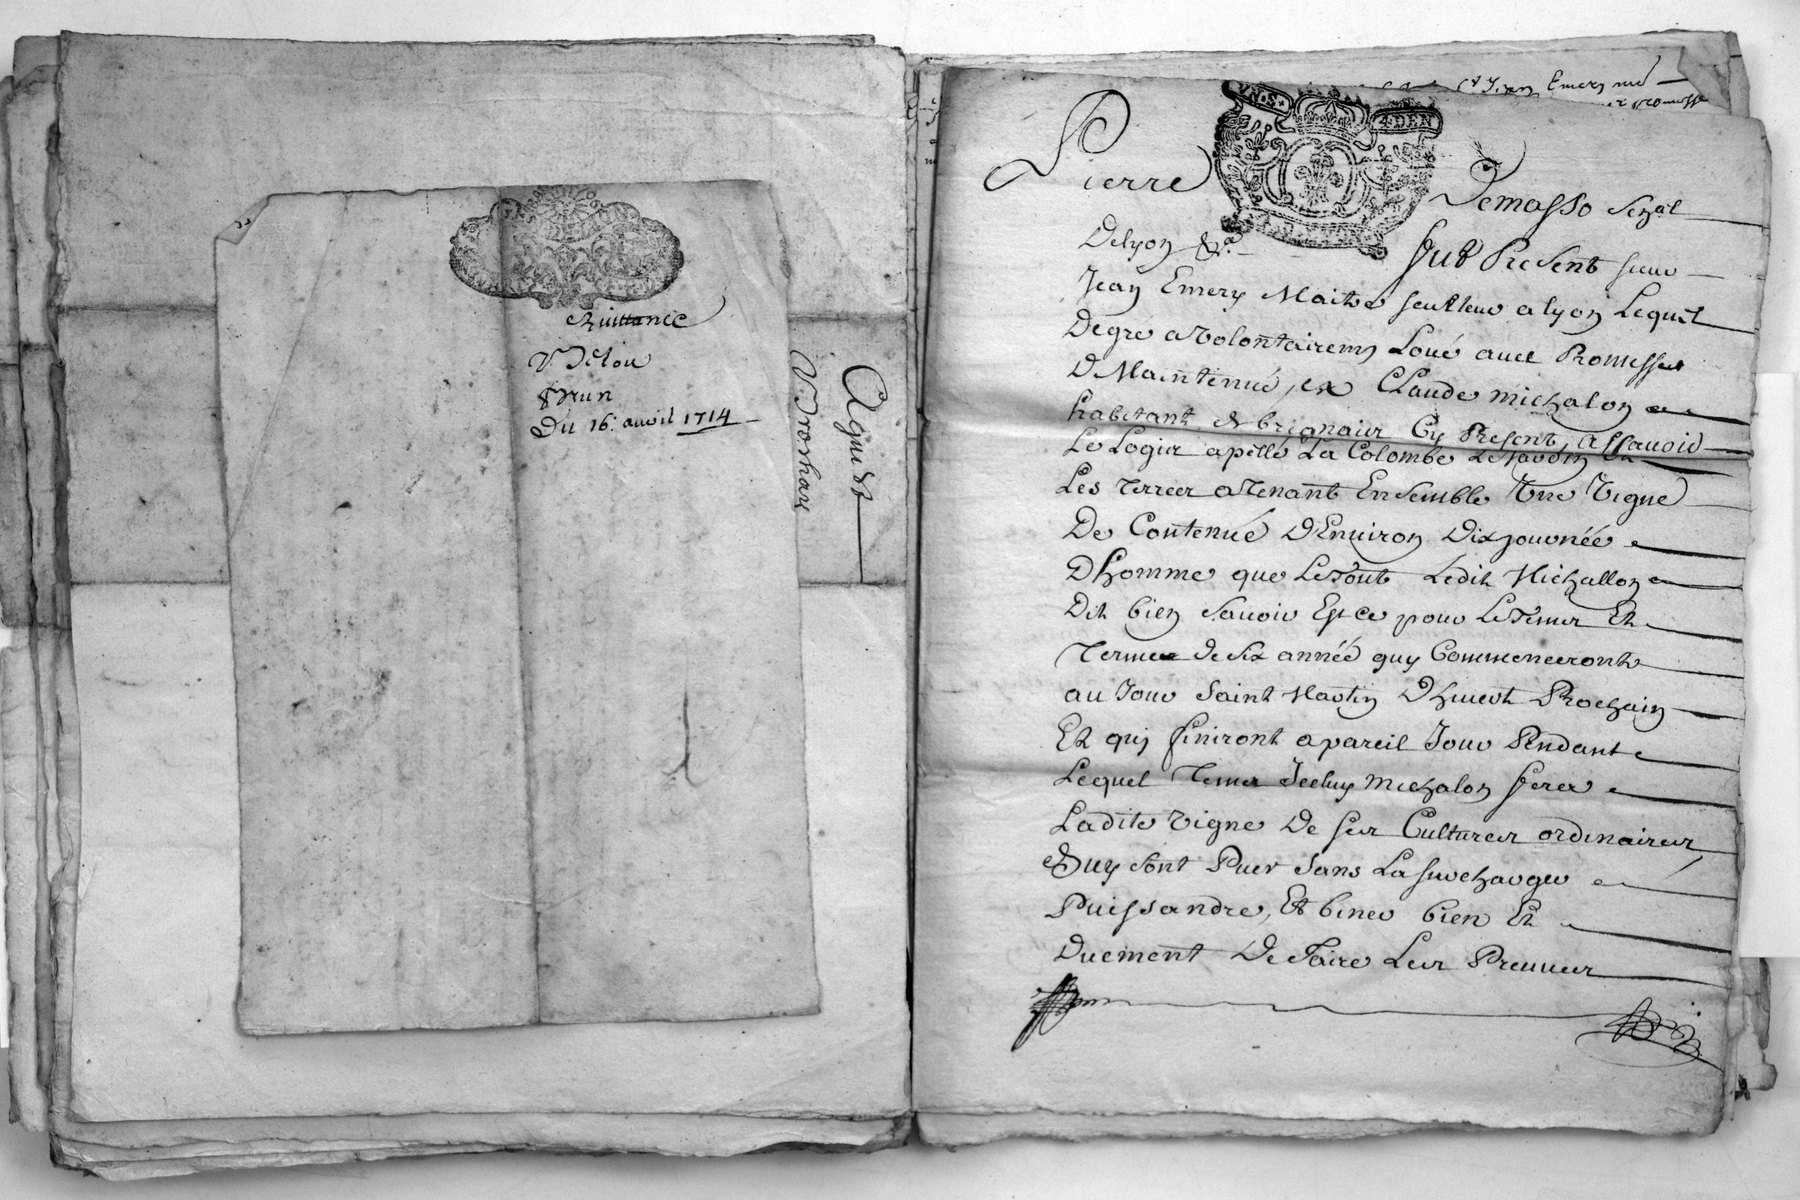 Quittance
Brun
Du 16. avril 1714
Aquist
VN.S. 4.DEN
Pierre Demasso Senal
Delyon &a.
fut Present sieur
Jean Emery Maitre sculteur a lyon Lequel
Degré a volontairemt Loué avec Promesse
D Maintenue, a Claude michalon
habitant de brignair Cy Present, assavoir
Le Logir apellé La Colombe Le Jardin
Les terrer atenant Ensemble Une Vigne
De Contenue D'Environ Dix journée
Dhomme que Le tout Ledit Michallon
Dit bien Savoir Est ce pour Le temer Et
Termer de Six année quy Commenceront
au Jour Saint Martin Dhiuert Prochain
Et quj finiront a pareil Jour Pendant
Lequel Temer Jceluy Michalon ferer
Ladite Vigne De ser Culturer ordinairer
Quy sont Puer Sans La surcharger
Puissandre, Et biner bien Et
Duement De Faire Ler Preuuer